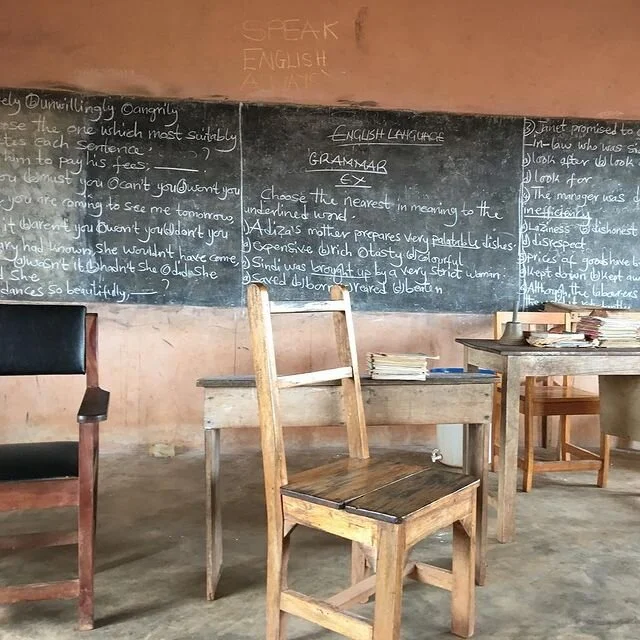 SPEAK
ENGLISH
ALWAYS
ely (b) unwillingly (c) angrily
ose the one which most suitably
tes each sentence.
him to pay his fees, ____?
you (b) must you (c) can't you (d) won't you
you are coming to see me tomorrow,
it (b) aren't you (c) won't you (d) don't you
ary had known, she wouldn't have come,
(a) wasn't it (b) hadn't she (c) did she
d she
dances so beautifully, ____?
ENGLISH LANGUAGE
GRAMMAR
EX
Choose the nearest in meaning to the
underlined word.
Adiza's mother prepares very palatable dishes.
expensive (b) rich (c) tasty (d) colourful
Sindi was brought up by a very strict woman.
saved (b) born (c) reared (d) beaten
3) Janet promised to
in-law who was sic
a) look after (b) look
d) look for
The manager was d
inefficiency
laziness (b) dishonest
disrespect
prices of goods have b
kept down (b) kept
Although the labourers